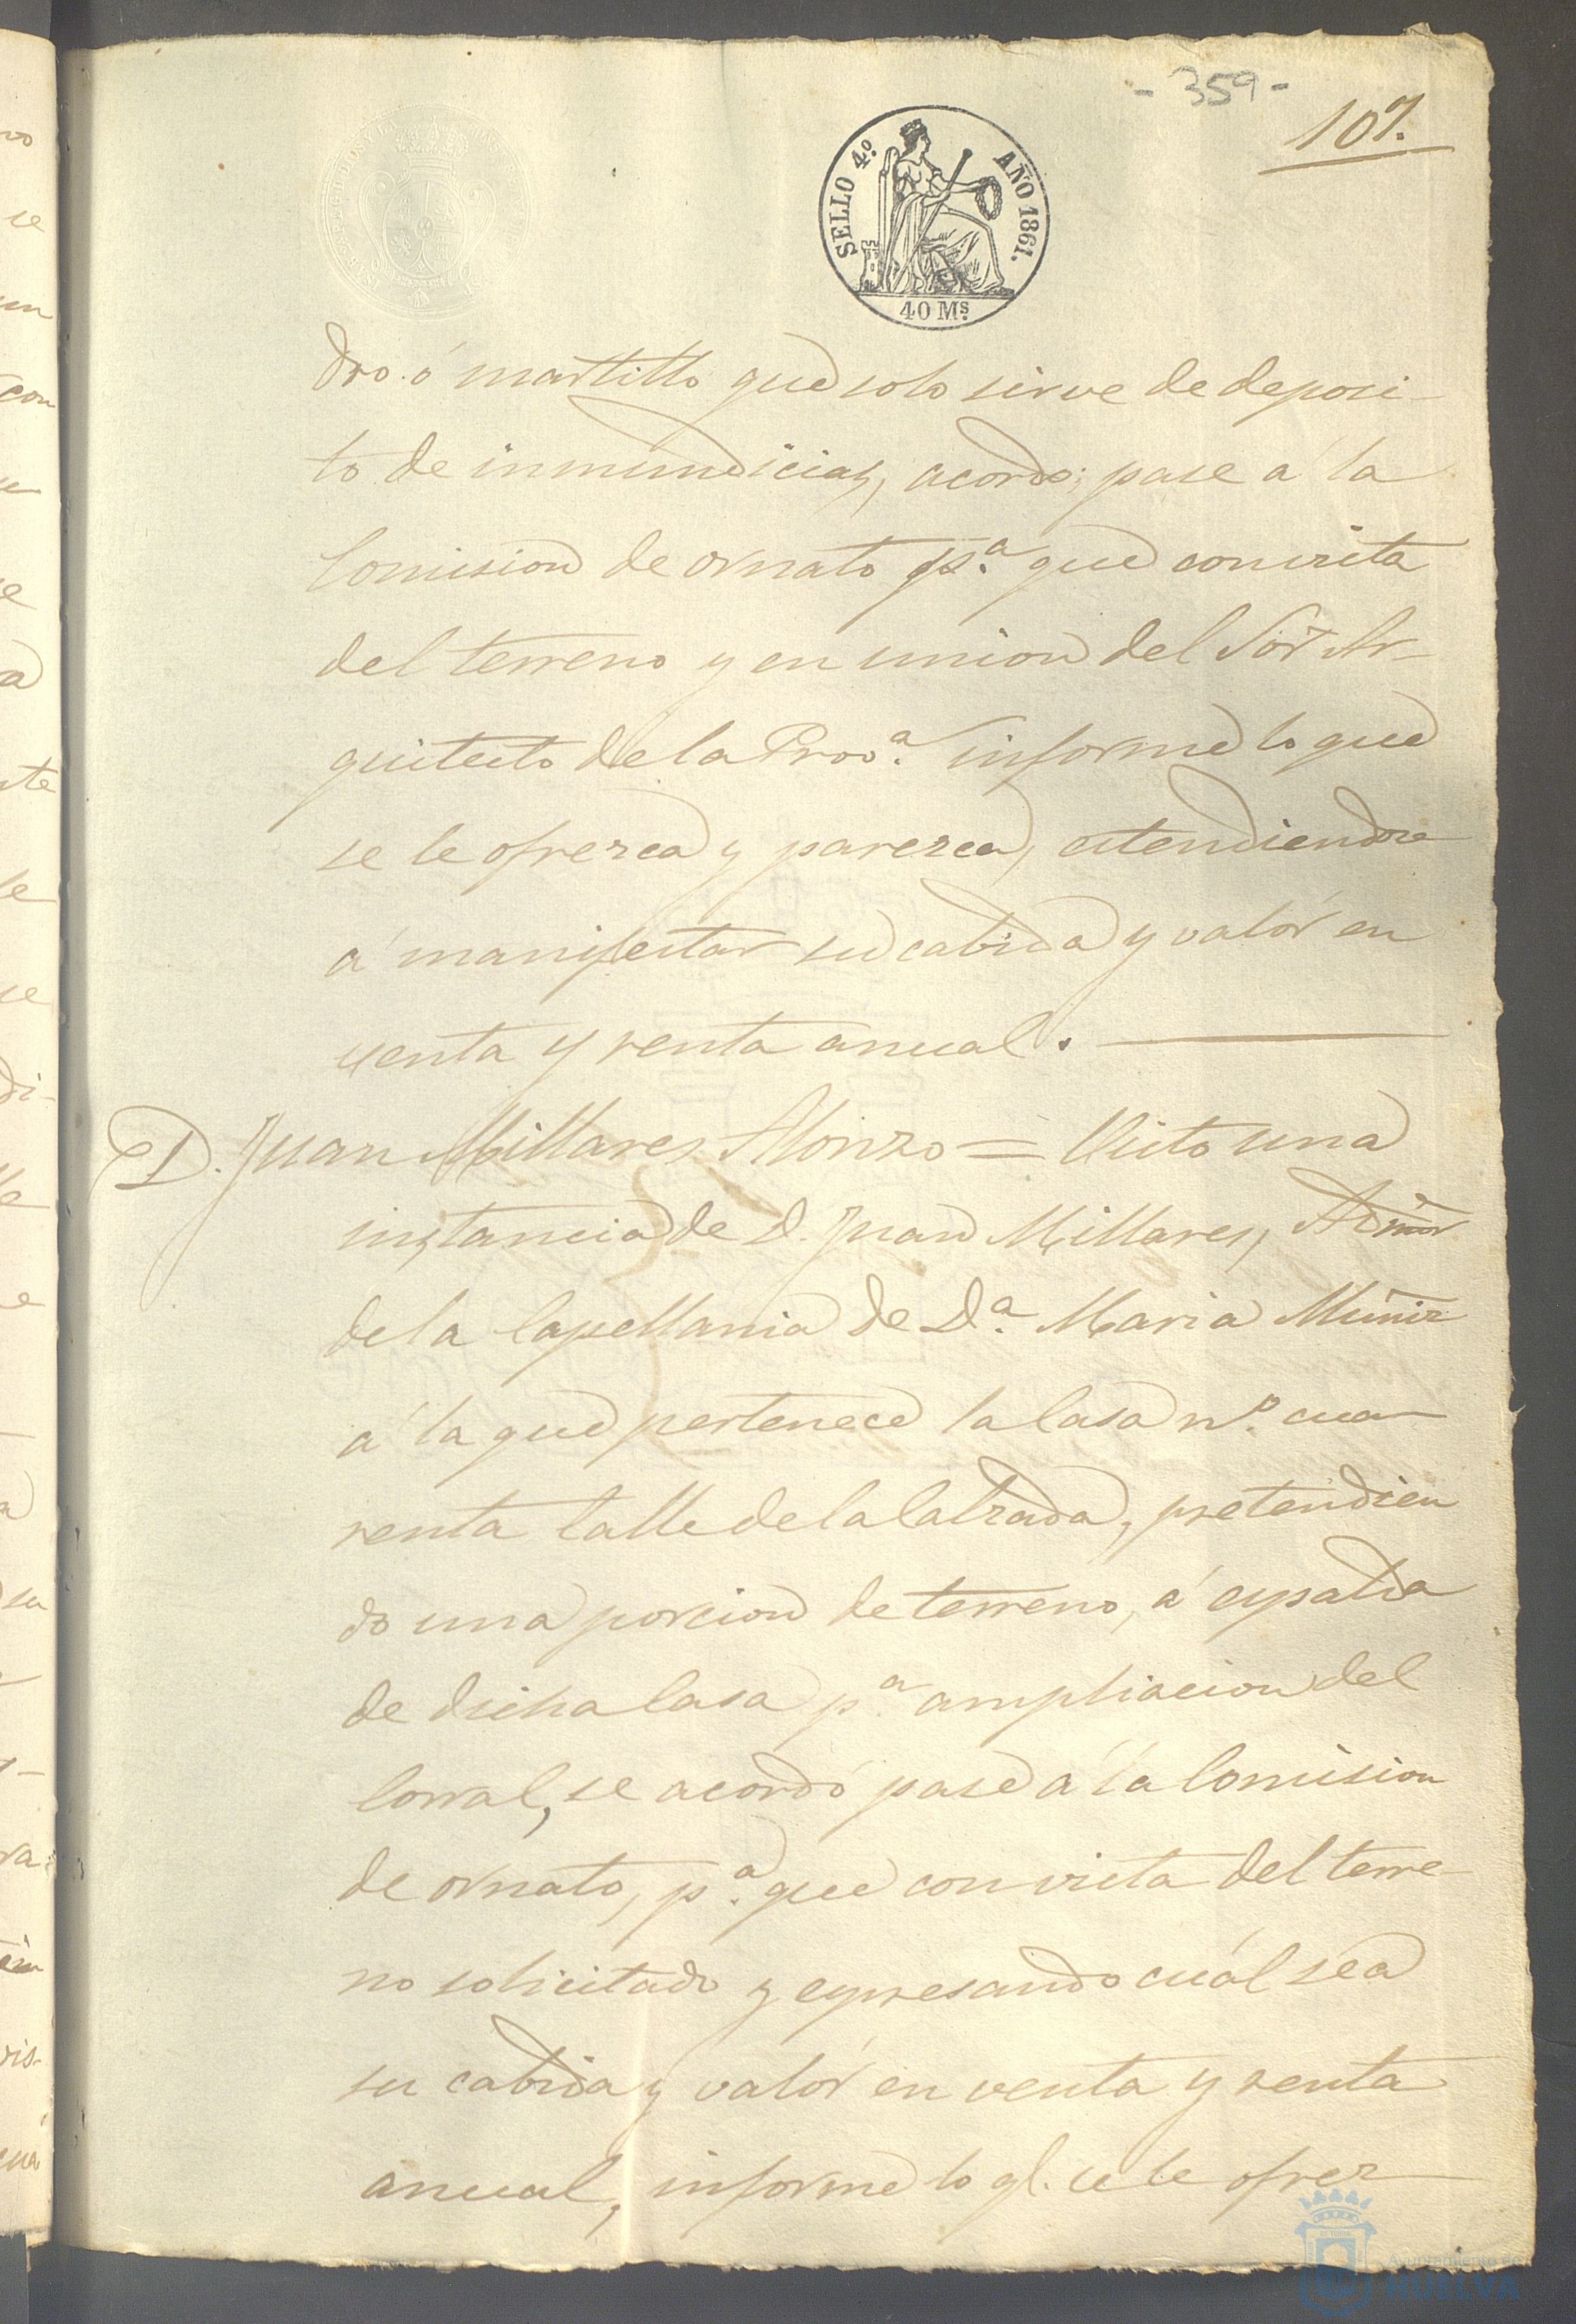 - 359 -
107.
SELLO 4.º AÑO 1861.
40 Ms.
dro ó martillo que solo sirve de deposi-
to de inmundicias, acordó; pase á la
Comision de ornato pª que con vista
del terreno y en union del Sór Ar-
quitecto de la Provª informe lo que
se le ofrezca y parezca, estendiendose
á manifestar su cabida y valór en
venta y renta anual.
D. Juan Millares Alonzo = Visto una
instancia de D. Juan Millares, Admor
de la Capellania de Dª Maria Muñiz
á la que pertenece la Casa nº cua-
renta Calle de la Calzada, pretendien
do una porcion de terreno, á espalda
de dicha Casa pª ampliacion del
Corral, se acordó pase á la Comision
de ornato, pª que con vista del terre-
no solicitado y espresando cuál sea
su cabida y valór en venta y renta
anual, informe lo ql. se le ofrez
Ayuntamiento de
HUELVA